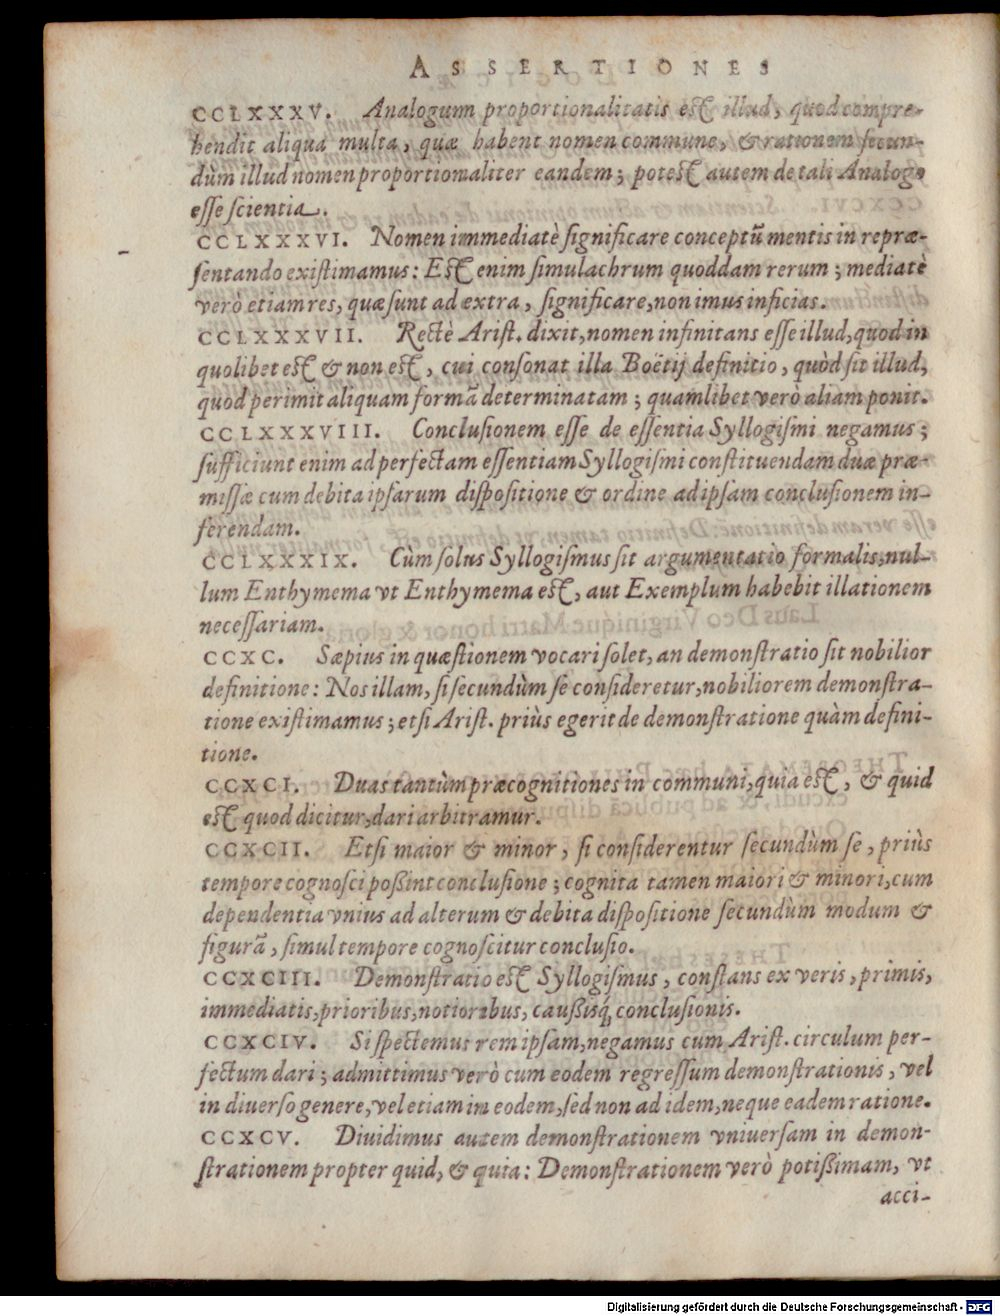 ASSERTIONES
CCLXXXV. Analogum proportionalitatis est illud, quod compre-
hendit aliqua multa, quæ habent nomen commune, & rationem secun-
dùm illud nomen proportionaliter eandem; potest autem de tali Analogo
esse scientia.
CCLXXXVI. Nomen immediatè significare conceptũ mentis in repræ-
sentando existimamus: Est enim simulachrum quoddam rerum; mediatè
verò etiam res, quæ sunt ad extra, significare, non imus inficias.
CCLXXXVII. Rectè Arist. dixit, nomen infinitans esse illud, quod in
quolibet est & non est, cui consonat illa Boëtij definitio, quòd sit illud,
quod perimit aliquam formã determinatam; quamlibet verò aliam ponit.
CCLXXXVIII. Conclusionem esse de essentia Syllogismi negamus;
sufficiunt enim ad perfectam essentiam Syllogismi constituendam duæ præ-
missæ cum debita ipsarum dispositione & ordine ad ipsam conclusionem in-
ferendam.
CCLXXXIX. Cùm solus Syllogismus sit argumentatio formalis, nul-
lum Enthymema vt Enthymema est, aut Exemplum habebit illationem
necessariam.
CCXC. Sæpius in quæstionem vocari solet, an demonstratio sit nobilior
definitione: Nos illam, si secundùm se consideretur, nobiliorem demonstra-
tione existimamus; etsi Arist. priùs egerit de demonstratione quàm defini-
tione.
CCXCI. Duas tantùm præcognitiones in communi, quia est, & quid
est quod dicitur, dari arbitramur.
CCXCII. Etsi maior & minor, si considerentur secundùm se, priùs
tempore cognosci poßint conclusione; cognita tamen maiori & minori, cum
dependentia vnius ad alterum & debita dispositione secundùm modum &
figurã, simul tempore cognoscitur conclusio.
CCXCIII. Demonstratio est Syllogismus, constans ex veris, primis,
immediatis, prioribus, notioribus, caußisq́; conclusionis.
CCXCIV. Si spectemus rem ipsam, negamus cum Arist. circulum per-
fectum dari; admittimus verò cum eodem regressum demonstrationis, vel
in diuerso genere, vel etiam in eodem, sed non ad idem, neque eadem ratione.
CCXCV. Diuidimus autem demonstrationem vniuersam in demon-
strationem propter quid, & quia: Demonstrationem verò potißimam, vt
acci-
Digitalisierung gefördert durch die Deutsche Forschungsgemeinschaft - DFG